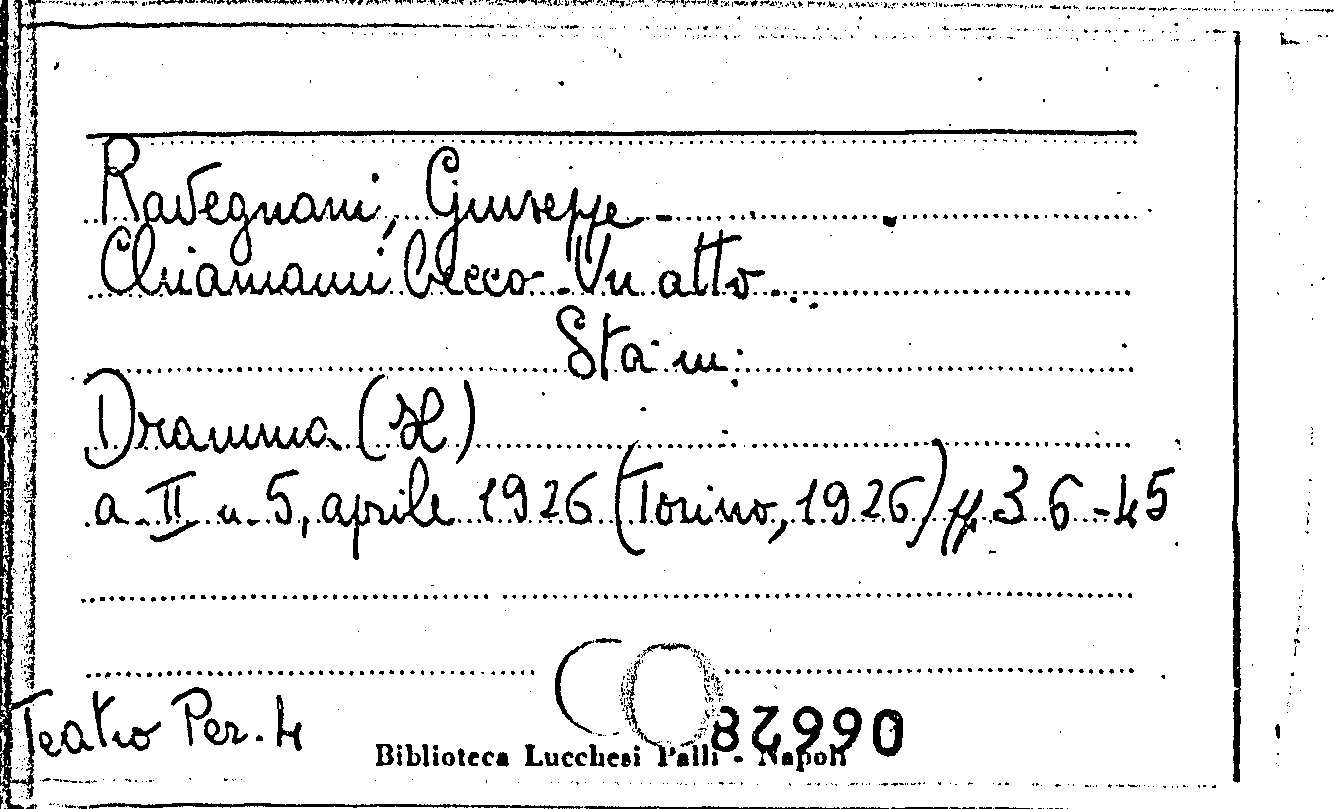 Ravegnani, Giuseppe -
Chiamami Cecco - Un atto.
Sta in:
Dramma (Il)
a. II n. 5, aprile 1926 (Torino, 1926) pp. 36-45
Teatro Per. 4
Biblioteca Lucchesi Palli - Napoli